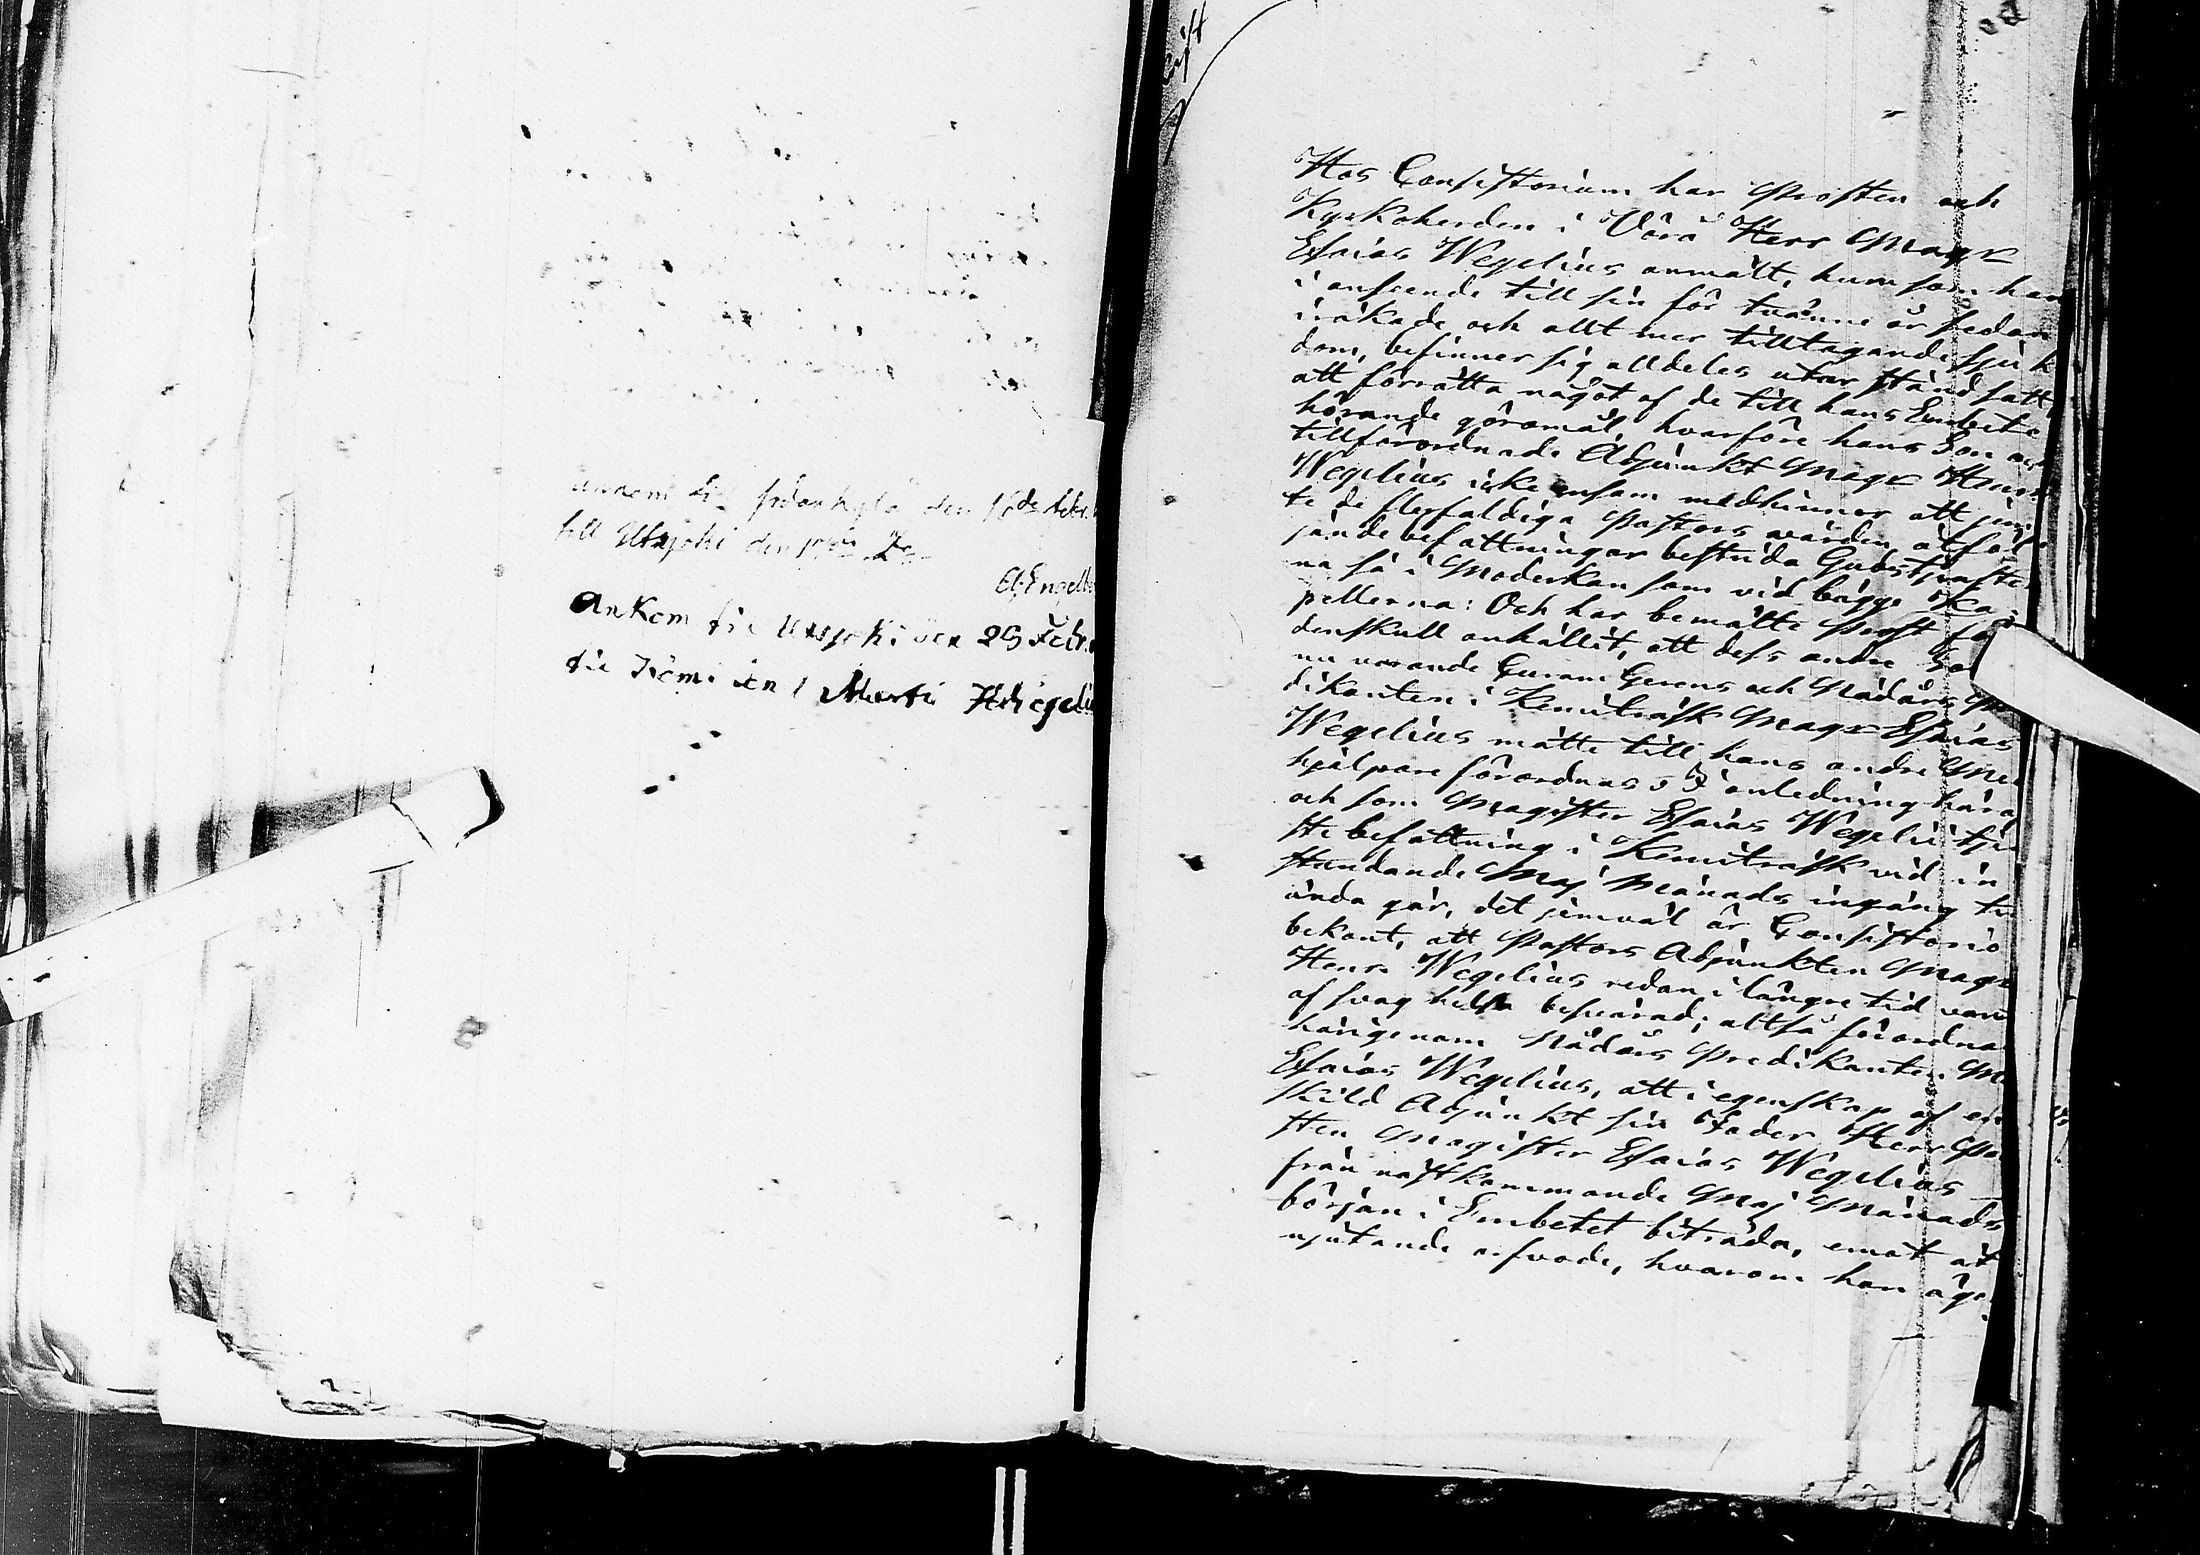 till Utsjoki den
El: Engelb
Ankom till Utsjoki den 29 Febr.
till Kemi den 1 Martii
Hos Consistorium har Prosten och
Kyrkoherden i Vörå Herr Magr
Esaias Wegelius anmält, hurusom han
i anseende till sin för tvänne år sedan
iråkade och allt mer tilltagande sjuk
dom, befinner sig alldeles utur stånd satt
att förrätta något af de till hans Embete
hörande göromål, hvarföre hans Son och
tillförordnade Adjunkt Magr Henr.
Wegelius icke ensam medhinner att jem
te de flerfaldiga Pastors vården åtföl
jande befattningar bestrida Gudstjenster
na så i Moderkan som vid bägge Ka
pellerna: Och har bemälte Prost fö
denskull anhållit, att dess andre Son
nu varande Curam Gerens och Nådårs Pre
dikanten i Kemiträsk Magr Esaias
Wegelius måtte till hans andre Me
hjälpare förordnas; I anledning häraf
och som Magister Esaias Wegelii tjen
ste befattning i Kemiträsk vid in
stundande Maj Månads ingång til
ända går, det jemväl är Consistorio
bekant, att Pastors Adjunkten Magr
Henr. Wegelius redan i längre tid varit
af svag helsa besvärad; altså förordnas
härigenom Nådårs Predikanten M
Esaias Wegelius, att i egenskap af en
skild Adjunkt sin Fader Herr Pro
sten Magister Esaias Wegelius
från nästkommande Maj Månads
början i Embetet biträda, emot åt
njutande arfvode, hvarom han äge